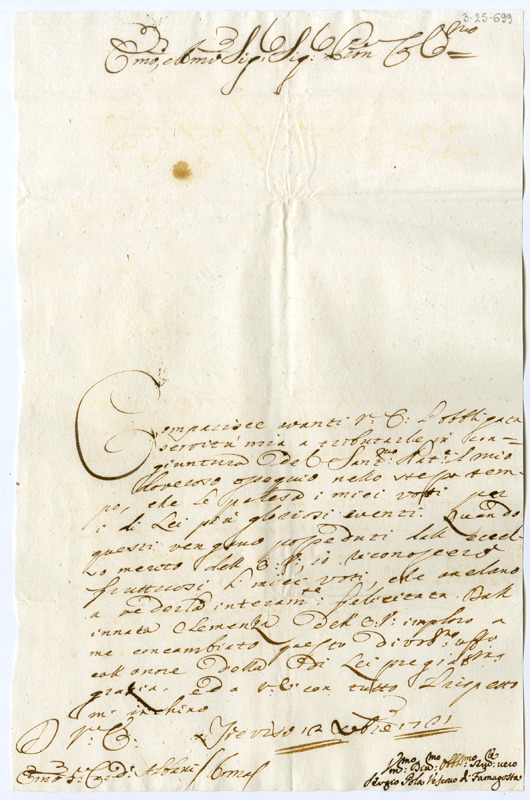 3-25-699
Em̃o, e Rmo Sig: Sig: Pron Col.mo
Comparisce avanti V: E: l'obbligata
servitù mia a tributarle in con=
giuntura del Sant.mo Nat.e il mio
doveroso ossequio nello stesso tem=
po, che le paleso i miei voti per
i di Lei più gloriosi eventi. Quando
questi vengano preceduti dall' eccel=
so merito dell' E: V:, io riconoscerò
fruttuosi li miei voti, che anelano
a vederla interam.te felicitata. Dall'
innata Clemenza dell' E: V: imploro a
me concambiato questo divot.mo uffo
coll' onore della di Lei pregiat.ma
grazia, ed a V: E: con tutto il rispetto
m' inchino
D V: E: Treviso 12 Xbre 1701
Em̃o S.r Card: Albani Roma
Vmo Dmo Obblmo Serd: vero
Sergio Pola Vescovo di Famagosta